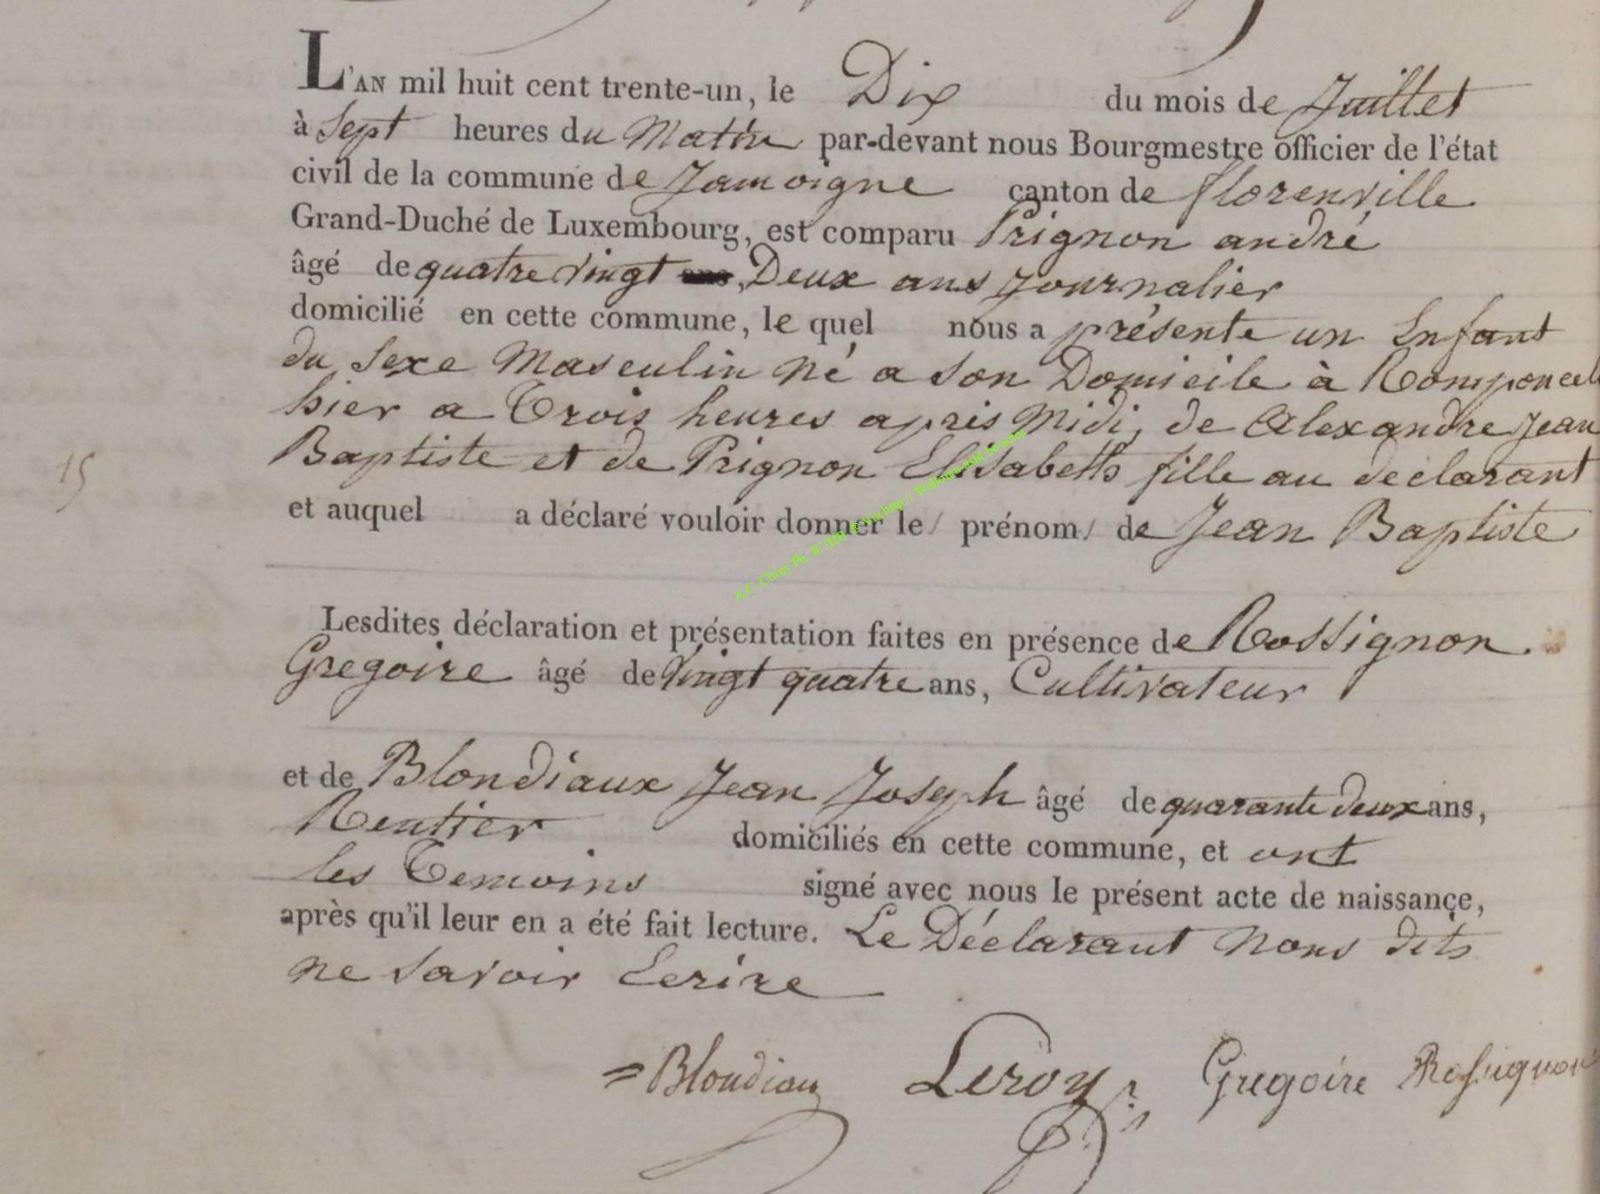 L'AN mil huit cent trente-un, le Dix du mois de Juillet
à Sept heures du Matin par-devant nous Bourgmestre officier de l'état
civil de la commune de Jamoigne canton de florenville
Grand-Duché de Luxembourg, est comparu Prignon andré
âgé de quatre vingt Deux ans Journalier
domicilié en cette commune, le quel nous a présente un Enfant
du Sexe Masculin né a son Domicile à Romponcel
hier a Trois heures apris Midi, de Alexandre Jean
Baptiste et de Prignon Elisabeth fille au declarant
15
et auquel a déclaré vouloir donner le/ prénom/ de Jean Baptiste
Lesdites déclaration et présentation faites en présence de Rossignon.
Gregoire âgé de Vingt quatre ans, Cultivateur
et de Blondiaux Jean Joseph âgé de quarante deux ans,
Rentier domiciliés en cette commune, et ont
les Temoins signé avec nous le présent acte de naissance,
après qu'il leur en a été fait lecture. Le Déclarant Nous dits
ne savoir Ecrire
=Blondiau Leroy Gregoire Rossignon